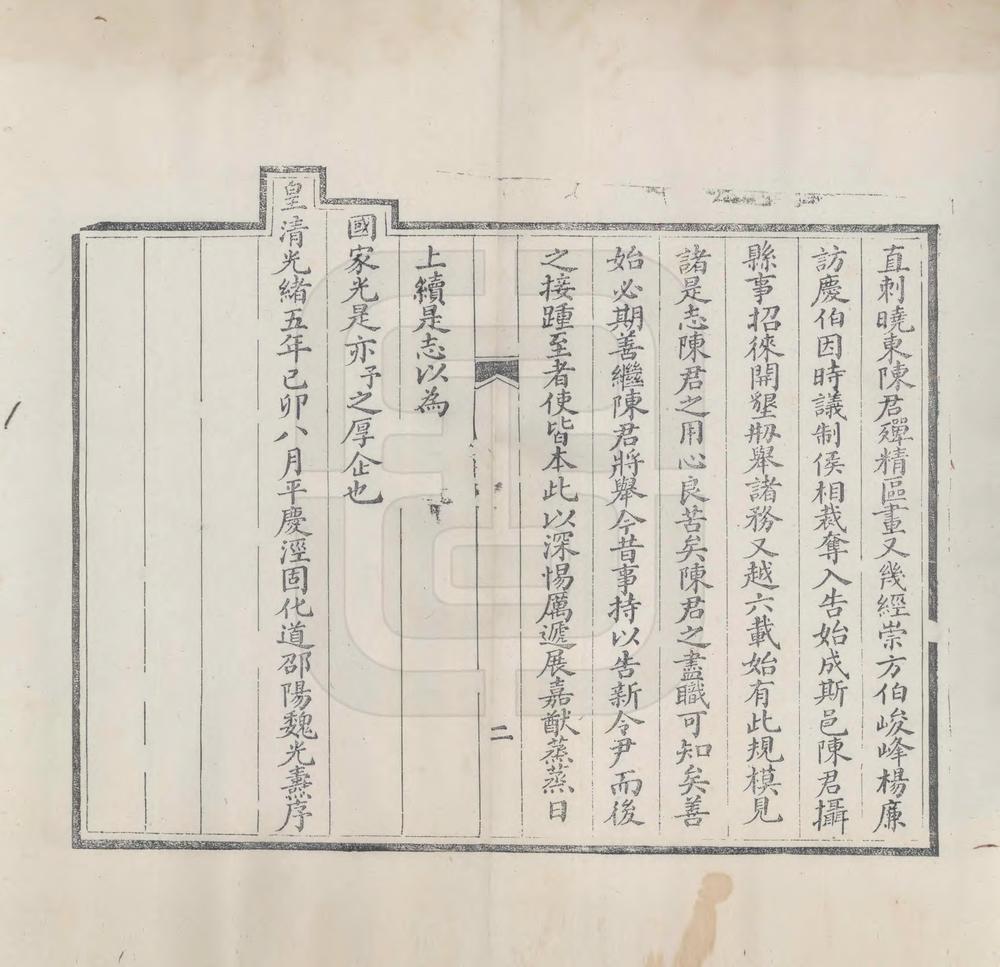 直刺曉東陳君殫精區畫又幾經崇方伯峻峰楊廉
訪慶伯因時議制侯相裁奪入告始成斯邑陳君攝
縣事招徠開墾剏舉諸務又越六載始有此規模見
諸是志陳君之用心良苦矣陳君之盡職可知矣善
始必期善繼陳君將舉今昔事持以告新令尹而後
之接踵至者使皆本此以深惕厲遞展嘉猷蒸蒸日
二
上續是志以為
國家光是亦予之厚企也
皇清光緒五年己卯八月平慶涇固化道邵陽魏光燾序